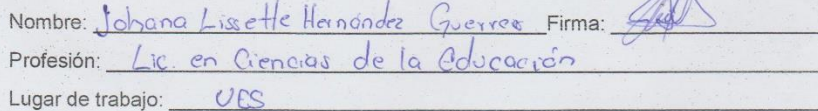 Nombre: Johana Lissette Hernández Guerrero Firma:
Profesión: Lic. en Ciencias de la Educación
Lugar de trabajo: UES